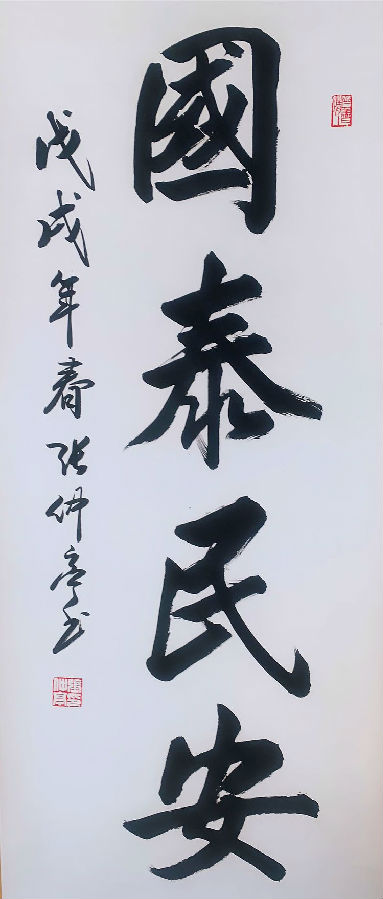 國泰民安
戊戌年春张仲亭书